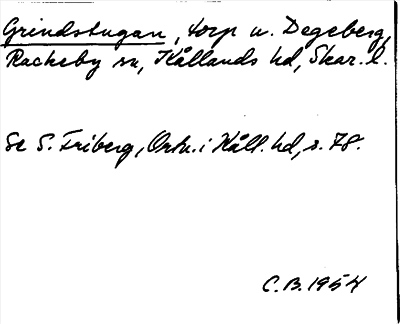 Grindstugan, torp u. Degeberg,
Rackeby sn, Kållands hd, Skar. l.
Se S. Friberg, Ortn. i Kåll. hd, s. 78.
C.B. 1954